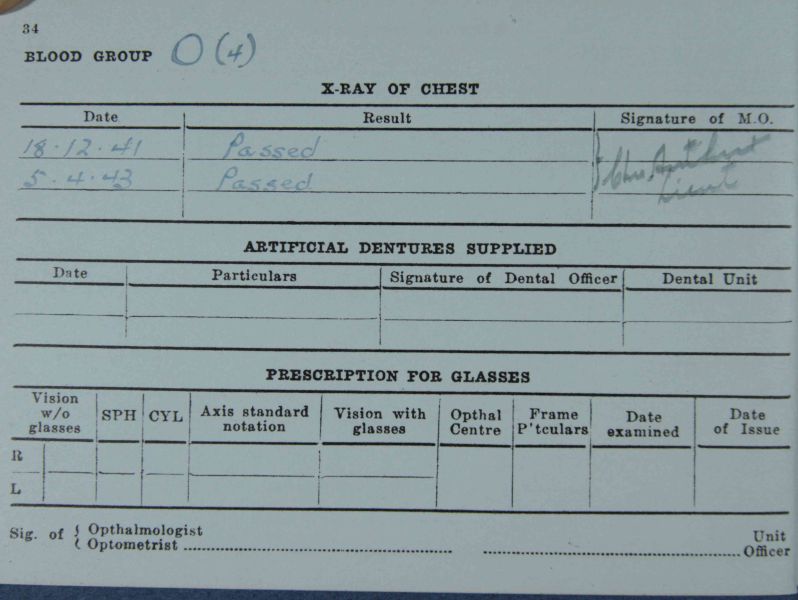 34
BLOOD GROUP O (4)
X-RAY OF CHEST
Date Result Signature of M.O.
18.12.41 Passed
5.4.43 Passed Lieut
ARTIFICIAL DENTURES SUPPLIED
Date Particulars Signature of Dental Officer Dental Unit
PRESCRIPTION FOR GLASSES
Vision w/o glasses SPH CYL Axis standard notation Vision with glasses Opthal Centre Frame P'tculars Date examined Date of Issue
R
L
Sig. of { Opthalmologist
Optometrist Unit Officer